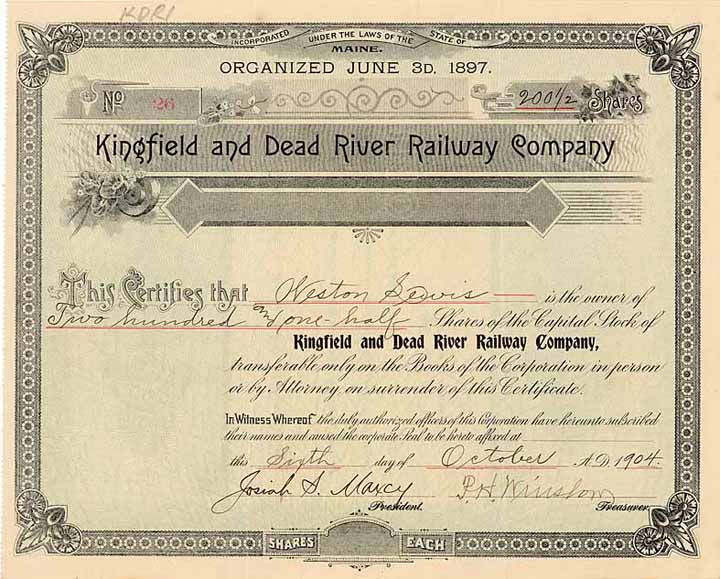 KDR1
INCORPORATED UNDER THE LAWS OF THE STATE OF
MAINE.
ORGANIZED JUNE 3D, 1897.
No 26 200 1/2 Shares
Kingfield and Dead River Railway Company
This Certifies that Weston Lewis is the owner of
Two hundred and one-half Shares of the Capital Stock of
Kingfield and Dead River Railway Company,
transferable only on the Books of the Corporation in person
or by Attorney on surrender of this Certificate.
In Witness Whereof the duly authorized officers of this Corporation have hereunto subscribed
their names and caused the corporate Seal to be hereto affixed at
this Sixth day of October A.D. 1904.
Josiah S. Maxcy P.H. Winslow
President. Treasurer.
SHARES EACH